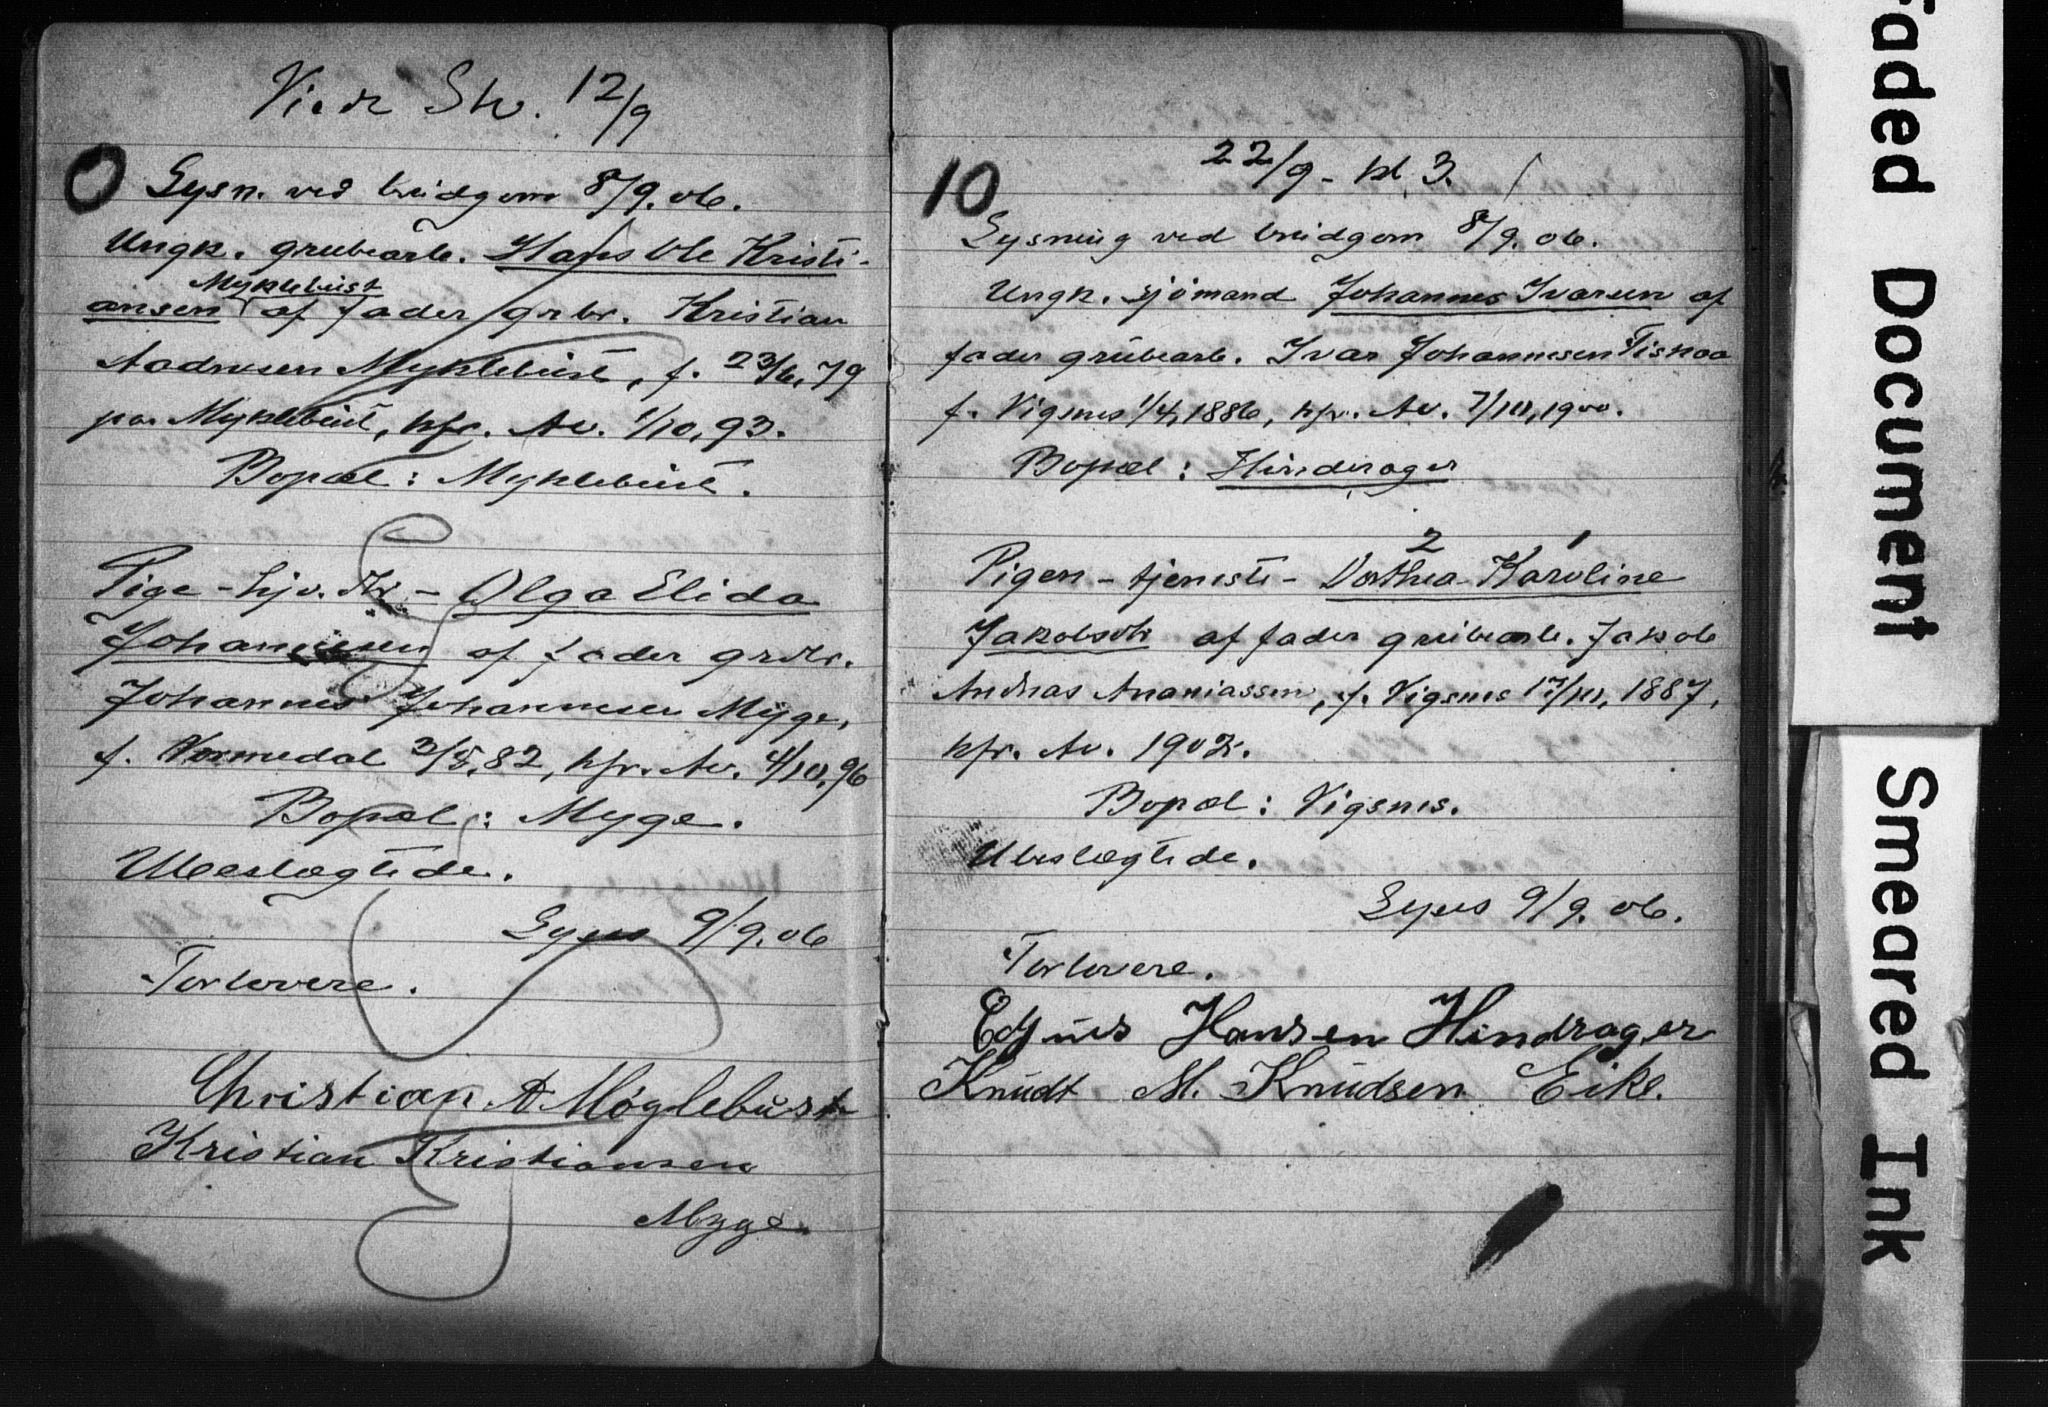 Viede Sk. 12/9
0 Lysn. ved brudgom 8/9.06.
Ungk. grubearb. Hans Ole Kristi-
Myklebust
ansen af fader grbr. Kristian
Aadnesen Myklebust, f. 23/6,79
paa Myklebust, kfr. Av. 1/10,93.
Bopæl: Myklebust.
Pige - hjv. - Olga Elida
Johannesen af fader grbr.
Johannes Johannesen Myge,
f. Vormedal 3/5,82, kfr. Av. 4/10,96
Bopæl: Myge.
Ubeslægtede.
Lyses 9/9.06
Forlovere.
Christian A Møglebust
Kristian Kristiansen
Myge.
22/9 - kl 3.
10
Lysning ved brudgom 8/9.06.
Ungk. sjømand Johannes Ivarsen af
fader grubearb. Ivar Johannesen Fiskaa
f. Vigsnes 1/4,1886, kfr. Av. 7/10,1900.
Bopæl: Hinderager
2 1
Pigen - tjeneste - Dorthea Karoline
Jakobsdtr af fader grubearb. Jakob
Andreas Ananiassen, f. Vigsnes 17/10, 1887,
kfr. Av. 1902.
Bopæl: Vigsnes.
Ubeslægtede.
Lyses 9/9.06.
Forlovere.
Hansen Hindrager
Knudt M. Knudsen Eike.
Faded Document
Smeared Ink